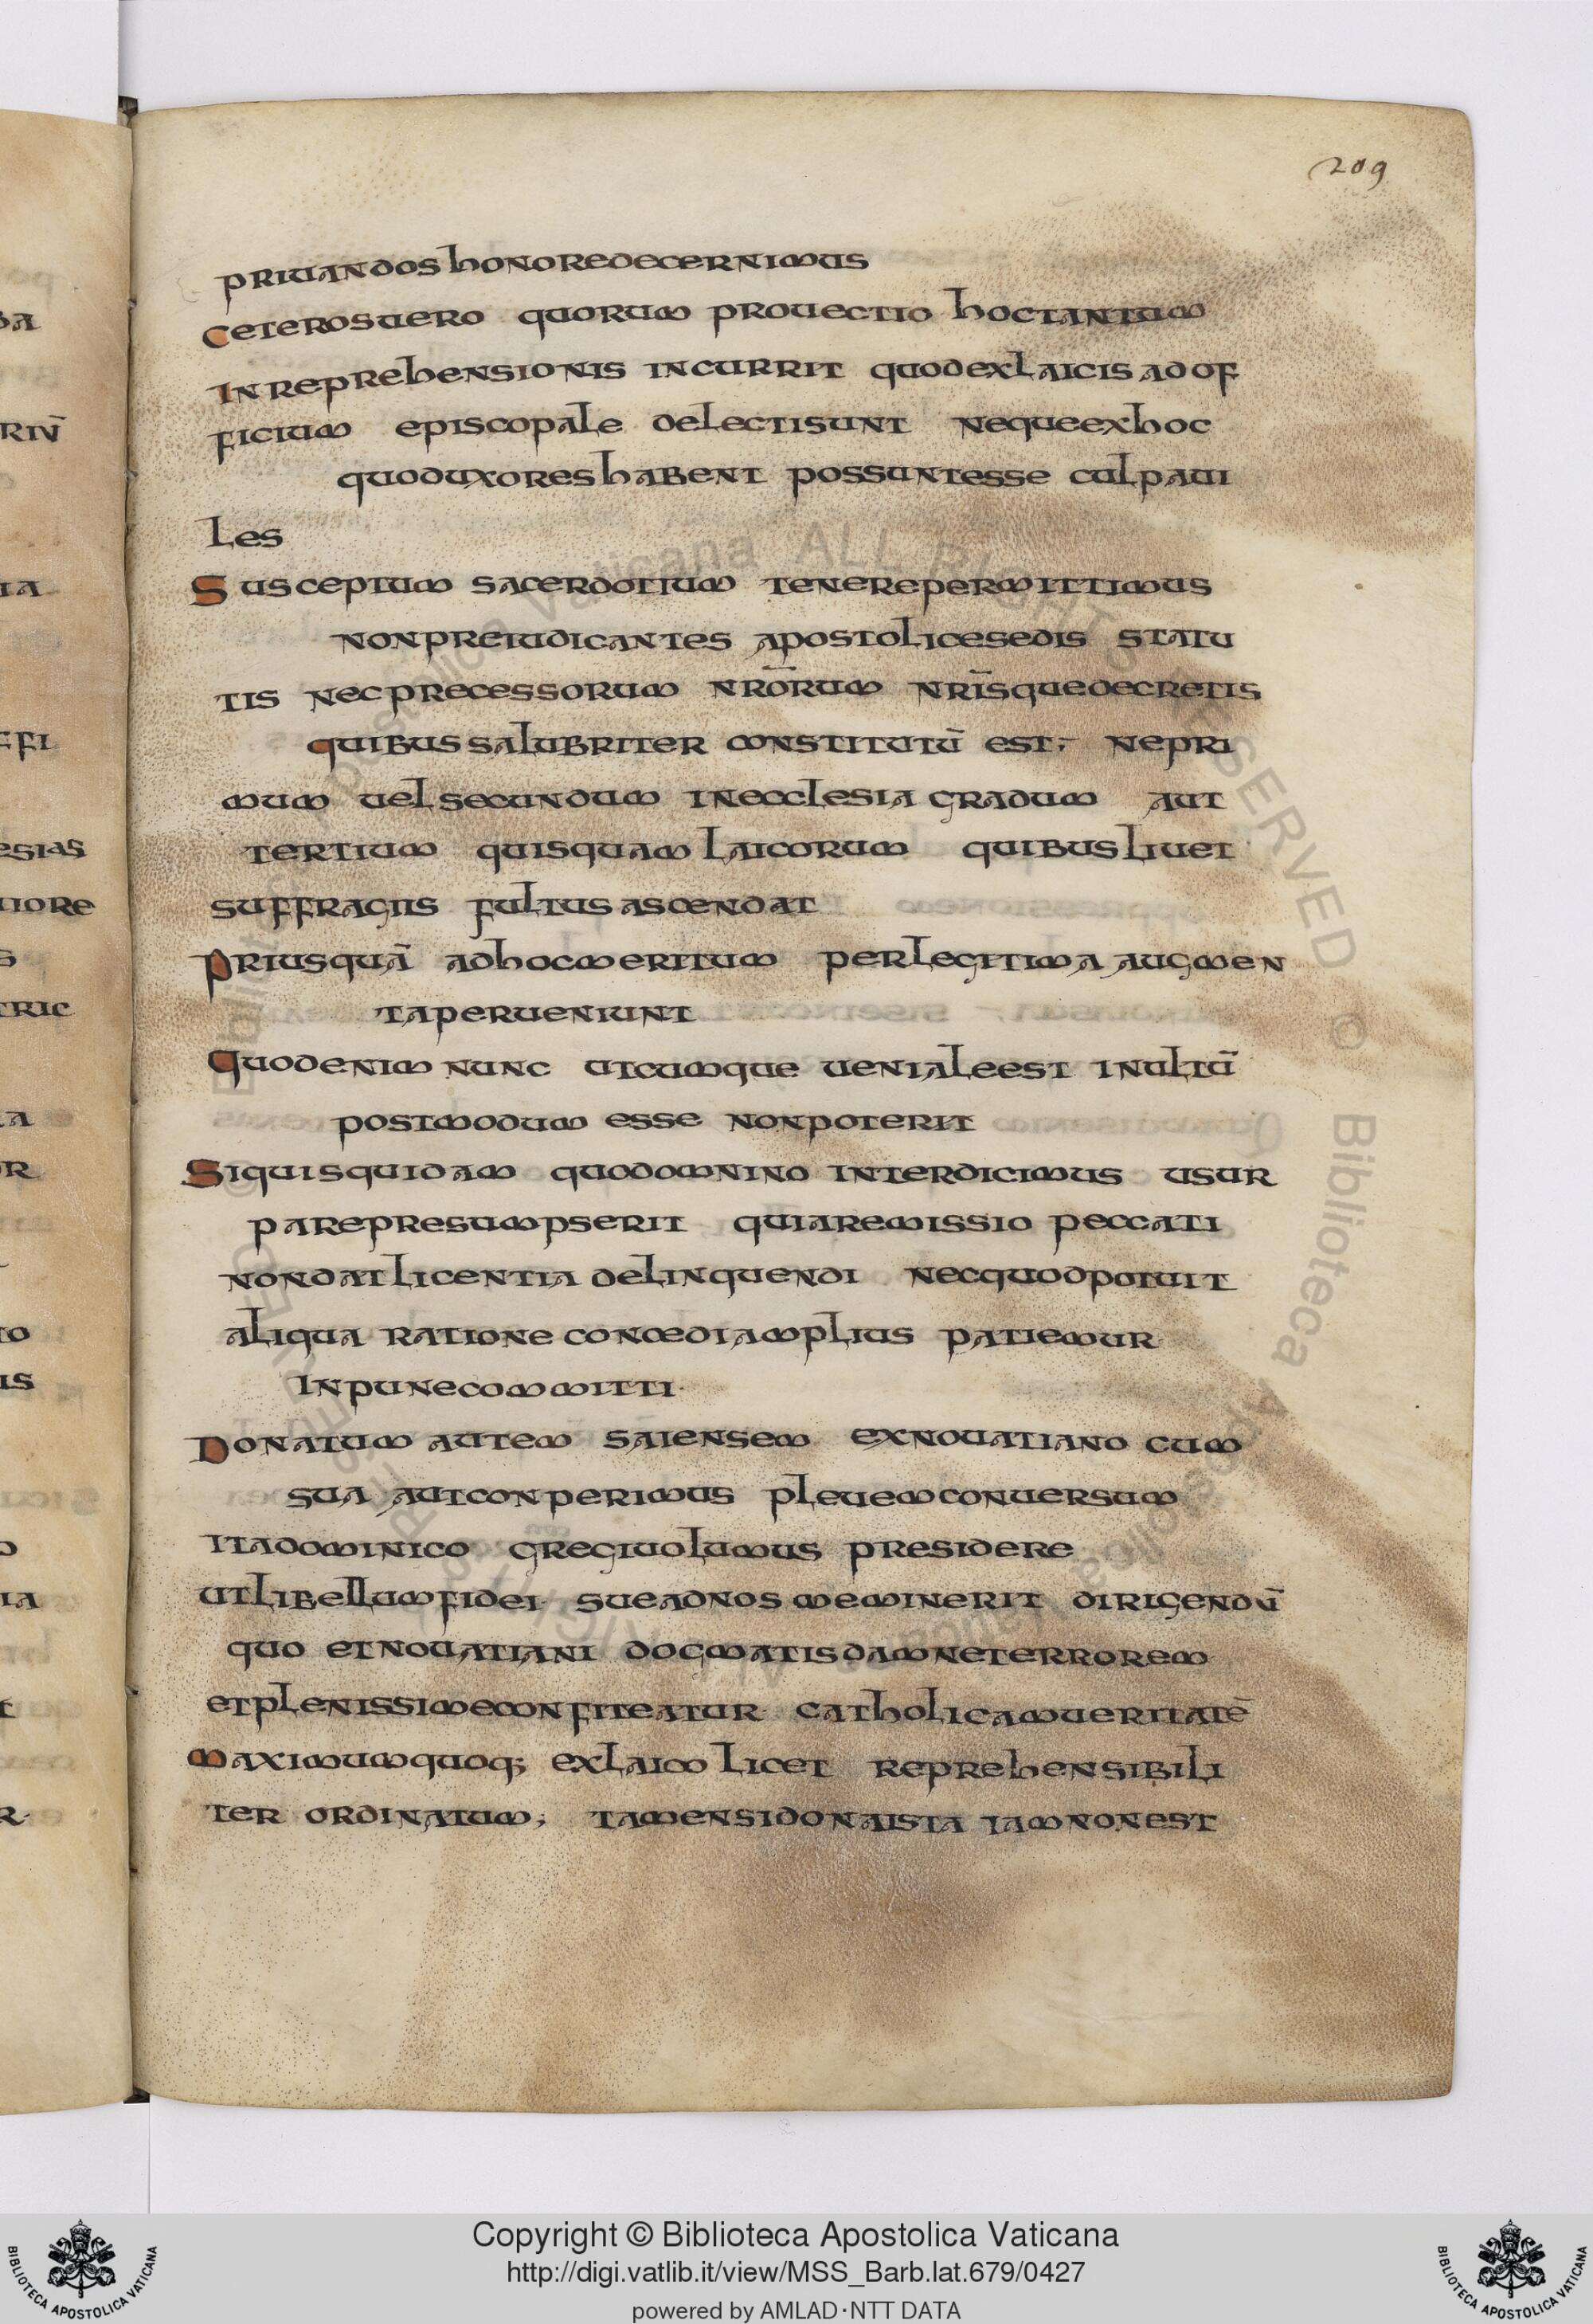 209
priuandos honore decernimus
Ceteros uero quorum prouectio hoc tantum
In reprehensionis incurrit quod ex laicis ad of
ficium episcopale delecti sunt neque ex hoc
quod uxores habent possunt esse culpaui
les
Susceptum sacerdotium tenere permittimus
non preiudicantes apostolice sedis statu
tis nec precessorum nr̄orum nr̄isque decretis
quibus salubriter constitutū est; ne pri
mum uel secundum in ecclesia gradum aut
tertium quisquam laicorum quibus liuet
suffragiis fultus ascendat
Priusquā ad hoc meritum per legitima augmen
ta perueniunt
Quod enim nunc utcumque ueniale est inultū
postmodum esse non poterit
Si quisquidam quod omnino interdicimus usur
pare presumpserit quia remissio peccati
non dat licentia delinquendi nec quod potuit
aliqua ratione concedi amplius patiemur
inpune committi·
Donatum autem saiensem ex nouatiano cum
sua aut conperimus pleuem conuersum
ita dominico gregi uolumus presidere
ut libellum fidei sue ad nos meminerit dirigendū
quo et nouatiani dogmatis damnet errorem
et plenissime confiteatur catholicam ueritatē
Maximum quoq; ex laico licet reprehensibili
ter ordinatum; tamen si donatista iam non est
Copyright © Biblioteca Apostolica Vaticana
http://digi.vatlib.it/view/MSS_Barb.lat.679/0427
powered by AMLAD·NTT DATA